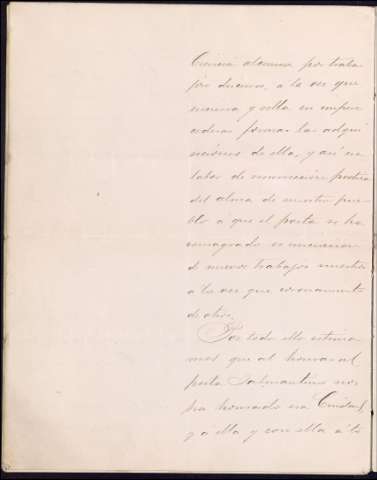 Ciencia alcance por traba
jos duraros, a la vez que
encierra y sella en impere
cedera forma las adqui
siciones de ella, y así su
labor de renovación poética
del alma de nuestro pue
blo a que el poeta se ha
consagrado es iniciación
de nuevos trabajos nuestros
a la vez que coronamiento
de otros.
Por todo ello estima
mos que al honrar al
poeta salmantino nos
ha honrado esa Ciudad,
y a ella y con ella a to